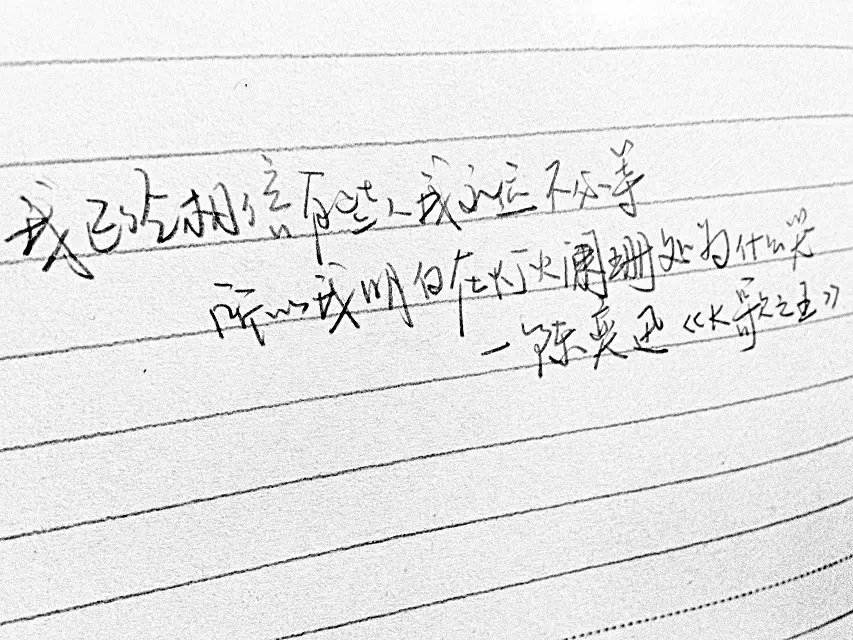 我已经相信有些人我永远不必等
所以我明白在灯火阑珊处为什么哭
—陈奕迅《K歌之王》